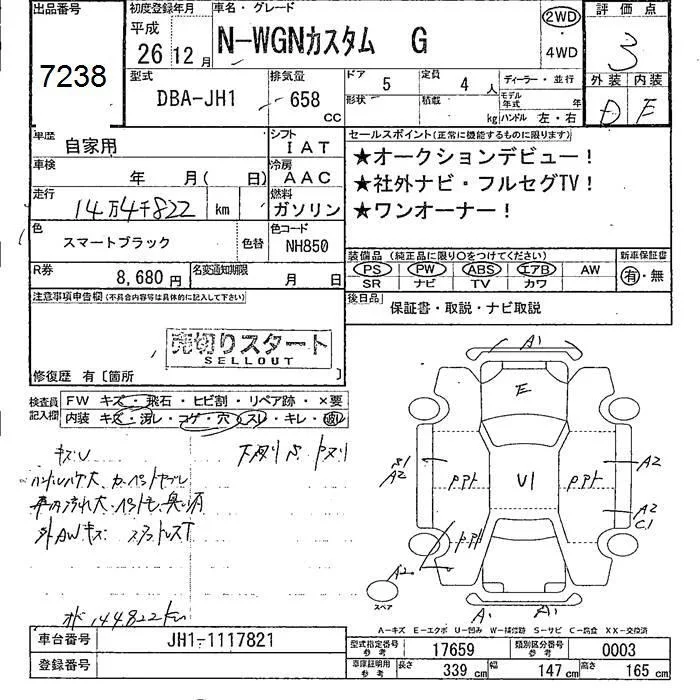 出品番号
7238
初度登録年月
平成
26 12 月
車名・グレード
N-WGNカスタム G
2WD
4WD
評価点
3
外装 内装
D E
型式
DBA-JH1
排気量
658
CC
ドア
5
定員
4 人
形状
積載
kg
ディーラー・並行
モデル年式 年
ハンドル 左・右
車歴
自家用
シフト
IAT
車検
年 月( 日)
冷房
AAC
走行
14万4千822 km
燃料
ガソリン
色
スマートブラック
色替
色コード
NH850
R券
8,680 円
名変通知期限
月 日
セールスポイント(正常に機能するものに限ります)
★オークションデビュー!
★社外ナビ・フルセグTV!
★ワンオーナー!
装備品(純正品に限り○をつけてください)
PS PW ABS エアB AW
SR ナビ TV カワ
新車保証書
有・無
後日品
保証書・取説・ナビ取説
注意事項申告欄(不具合内容等は具体的に記入して下さい)
売切りスタート
SELLOUT
修復歴 有〔箇所 〕
検査員記入欄
FW キズ・飛石・ヒビ割・リペア跡・×要
内装 キズ・汚レ・コゲ・穴・スレ・キレ・
キズU
外AWキズ
144822km
A1
E
A2
V1
A2
A2
C1
A2
スペア
A1
A1
A-キズ E-エクボ U-凹み W-補修跡 S-サビ C-腐食 XX-交換済
車台番号
JH1-1117821
登録番号
型式指定番号 参考
17659
類別区分番号 参考
0003
車庫証明用 参考
長さ 339 cm
幅 147 cm
高さ 165 cm